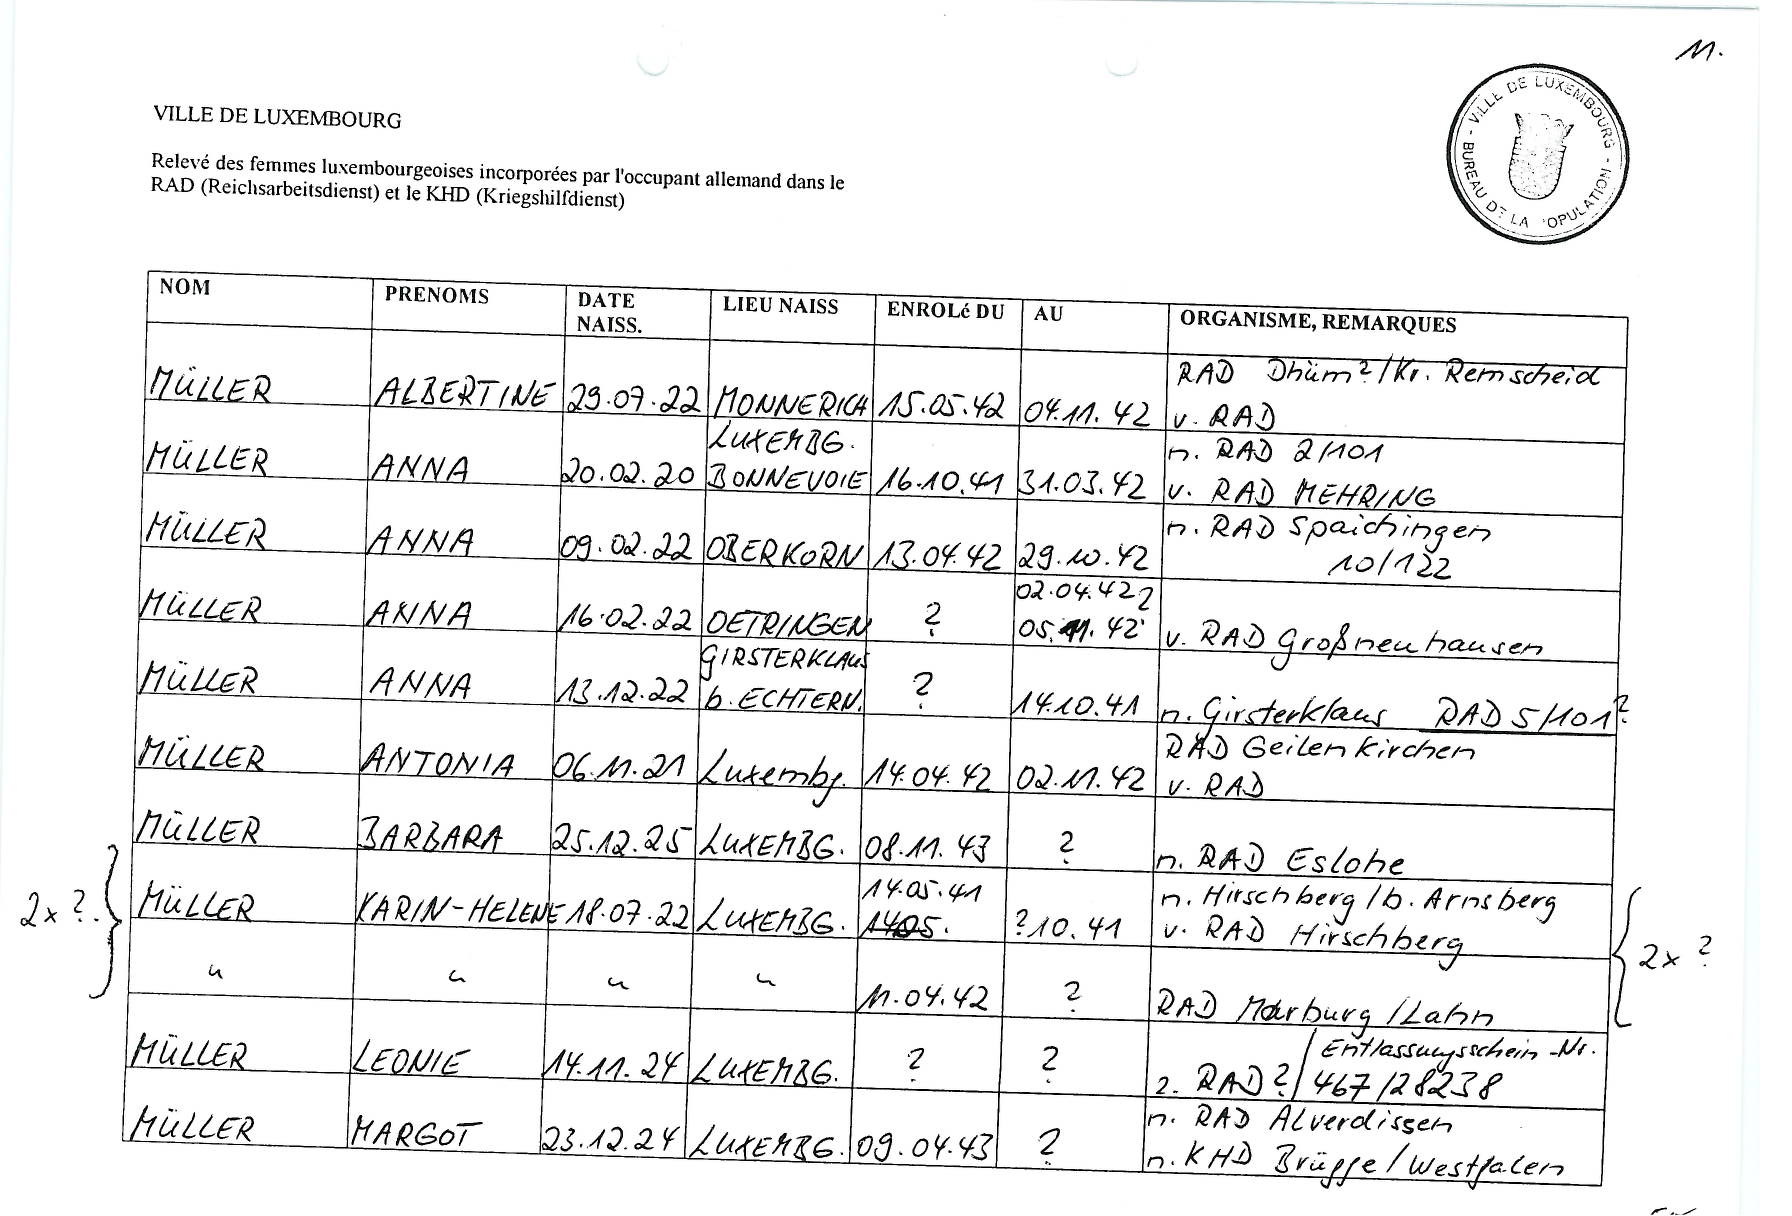 M.
VILLE DE LUXEMBOURG
Relevé des femmes luxembourgeoises incorporées par l'occupant allemand dans le
RAD (Reichsarbeitsdienst) et le KHD (Kriegshilfdienst)
VILLE DE LUXEMBOURG - BUREAU DE LA POPULATION -
NOM PRENOMS DATE NAISS. LIEU NAISS ENROLé DU AU ORGANISME, REMARQUES
MÜLLER ALBERTINE 29.07.22 MONNERICH 15.05.42 04.11.42 RAD Dhüm?/Kr. Remscheid
v. RAD
MÜLLER ANNA 20.02.20 LUXEMBG. BONNEVOIE 16.10.41 31.03.42 n. RAD 2/101
v. RAD MEHRING
MÜLLER ANNA 09.02.22 OBERKORN 13.04.42 29.10.42 n. RAD Spaichingen
10/122
MÜLLER ANNA 16.02.22 OETRINGEN ? 02.04.42? 05.11.42 v. RAD Großneuhausen
MÜLLER ANNA 13.12.22 GIRSTERKLAUS b. ECHTERN. ? 14.10.41 n. Girsterklaus RAD 5/101?
MÜLLER ANTONIA 06.11.21 Luxembg. 14.04.42 02.11.42 RAD Geilenkirchen
v. RAD
MÜLLER BARBARA 25.12.25 LUXEMBG. 08.11.43 ? n. RAD Eslohe
2x ?. MÜLLER KARIN-HELENE 18.07.22 LUXEMBG. 14.05.41 1405. ?10.41 n. Hirschberg/b. Arnsberg
v. RAD Hirschberg 2x ?
" " " " 11.04.42 ? RAD Marburg/Lahn
MÜLLER LEONIE 14.11.24 LUXEMBG. ? ? z. RAD?/ Entlassungsschein-Nr.
467/28238
MÜLLER MARGOT 23.12.24 LUXEMBG. 09.04.43 ? n. RAD Alverdissen
n. KHD Brügge/Westfalen